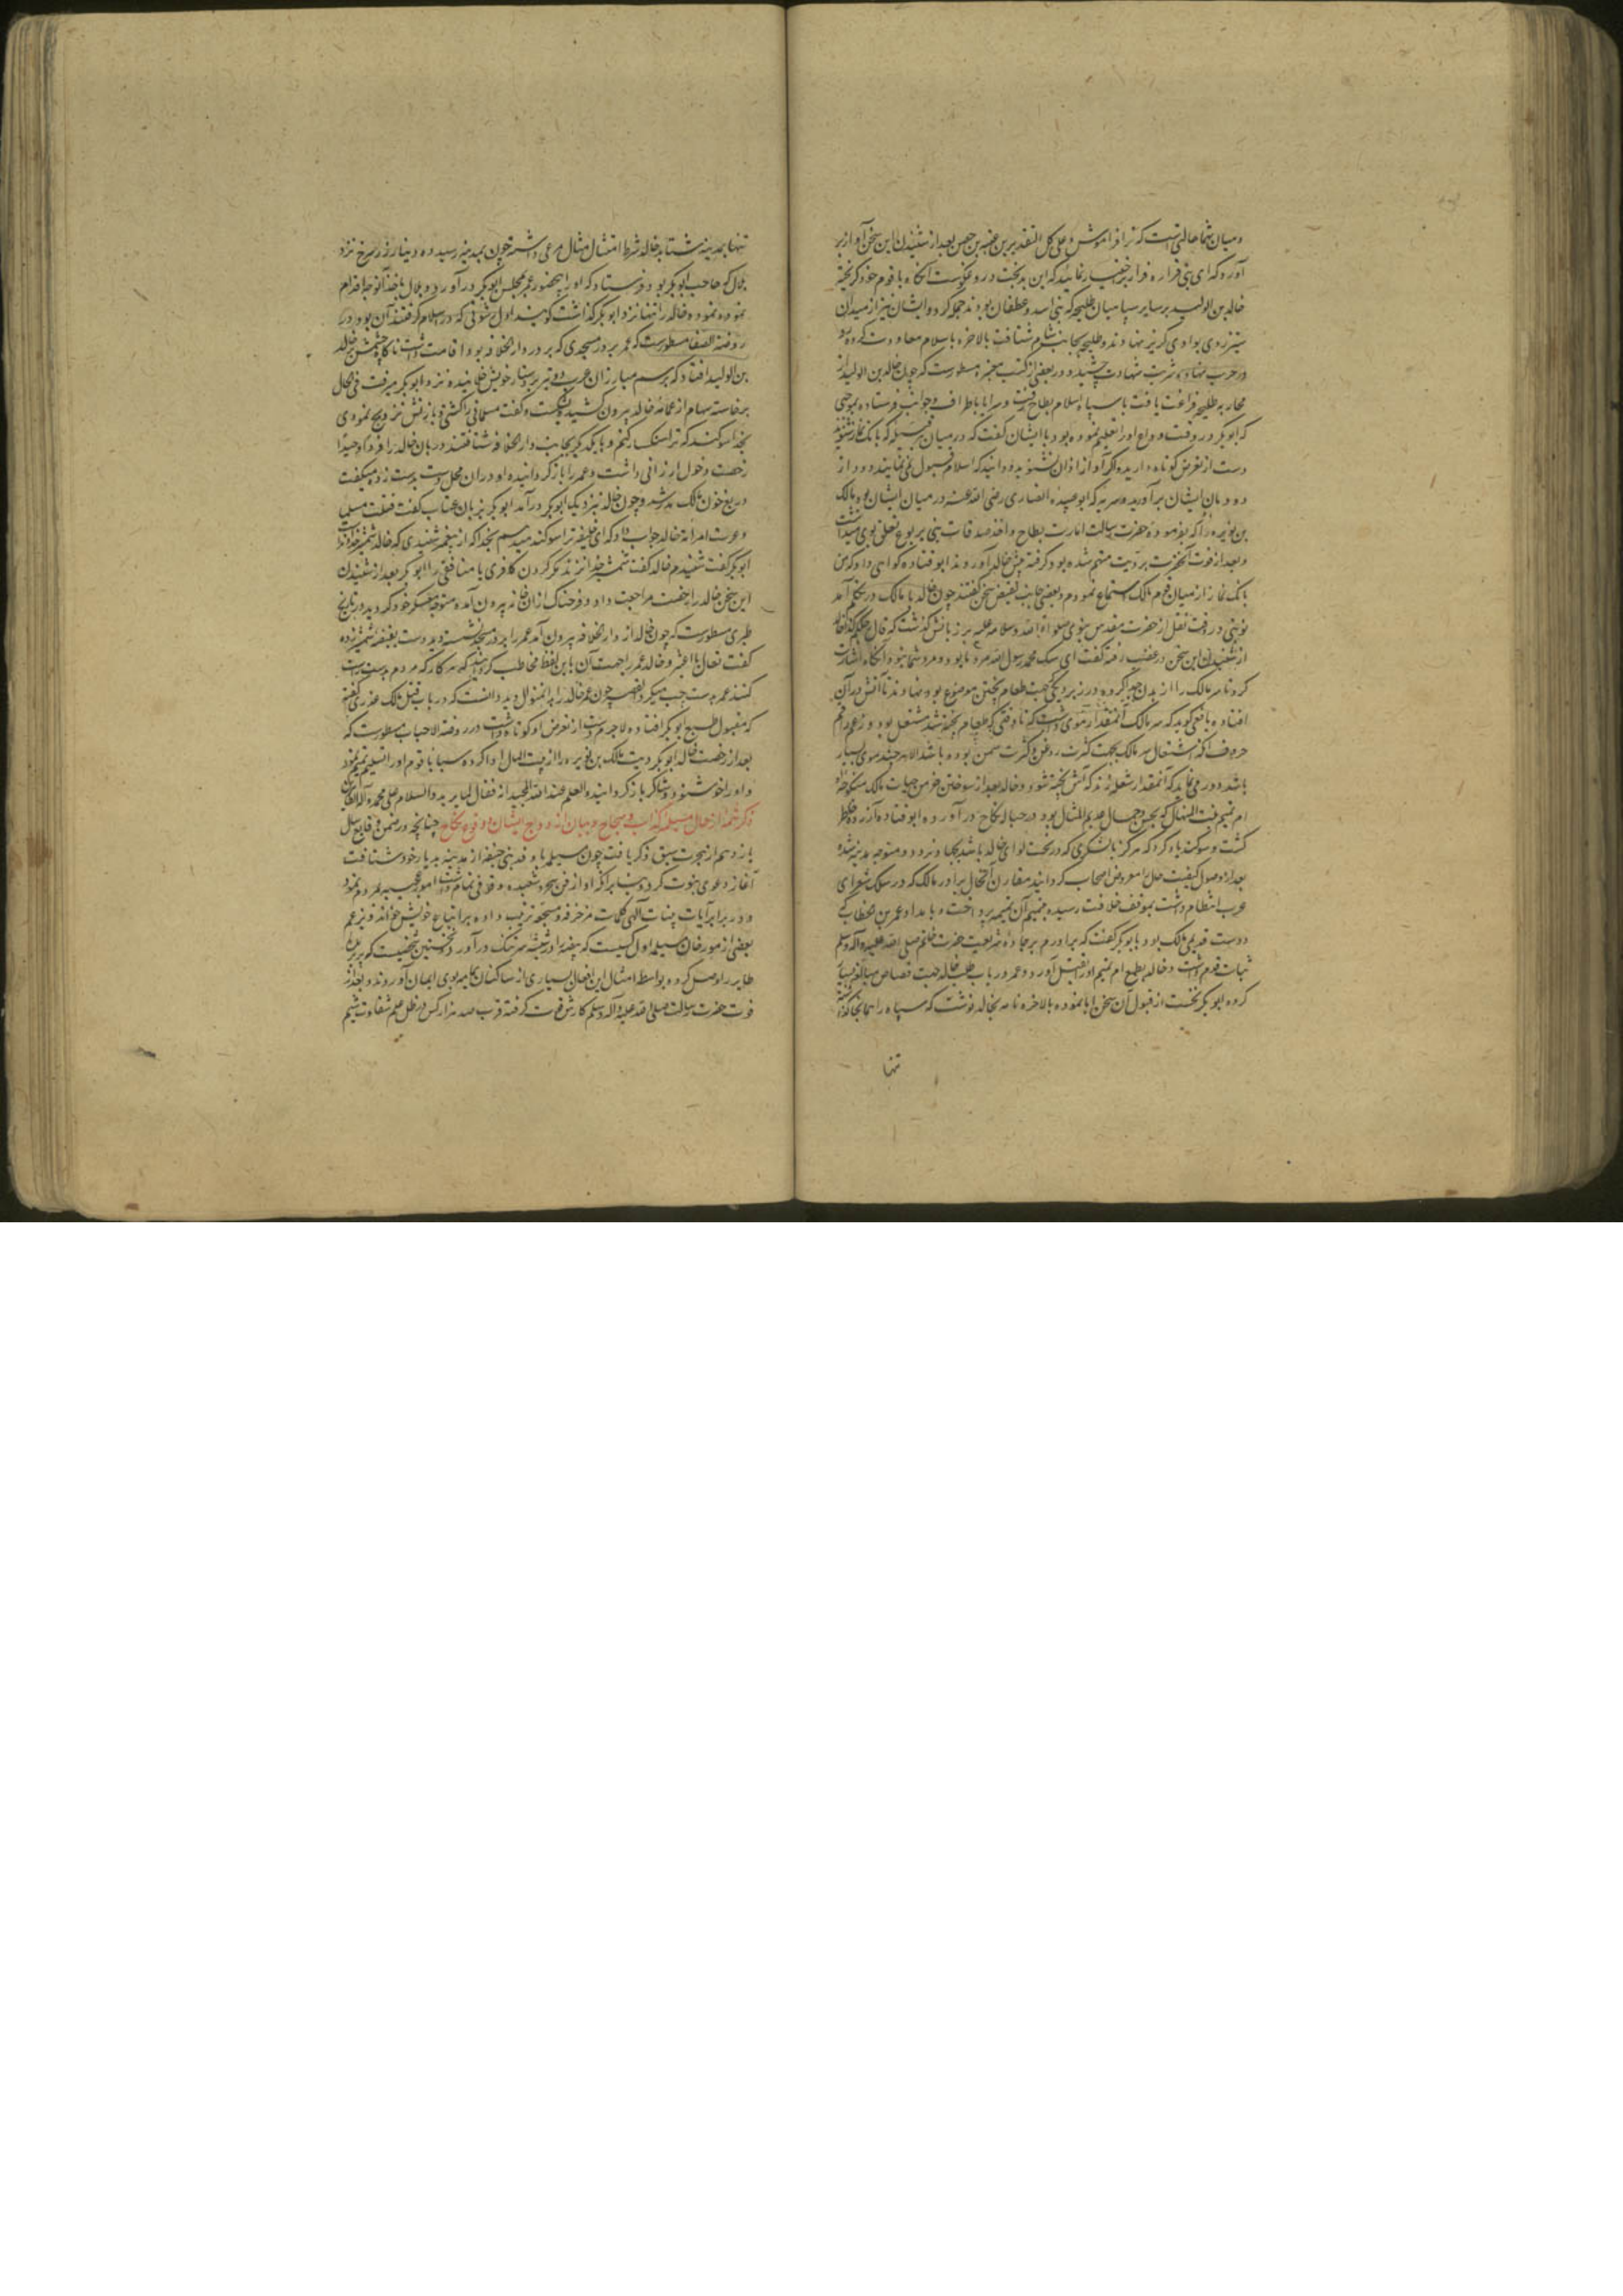 و میان شما حالتی است که ترا فراموش و علی کل التقدیرین عیینه بن حصن بعد از شنیدن این سخن آواز بر
آورد که ای بنی فزاره فرار بر قرار اختیار نمائید که این بدبخت دروغگوست آنگاه با قوم خود گریخته
خالد بن الولید بر سایر سپاهیان طلیحه که بنی اسد و غطفان بودند حمله کرد و ایشان نیز از میدان
ستیز روی بوادی گریز نهادند و طلیحه بجانب شام شتافت بالاخره باسلام معاودت کرده
در حرب نهاوند شربت شهادت چشید و در بعضی از کتب معتبره مسطورست که چون خالد بن الولید از
محاربه طلیحه فراغت یافت با سپاه اسلام بطاح رفت و سرایا باطراف و جوانب فرستاده بموجبی
که ابوبکر در وقت وداع او را تعلیم نموده بود با ایشان گفت که در میان هر قبیله که بانک نماز شنوید
دست از تعرض کوتاه دارید و اگر آواز اذان نشنوید و دانید که اسلام قبول نمی نمایند دود از
دودمان ایشان برآورید و سریه که ابو عبیده انصاری رضی الله عنه در میان ایشان بود مالک
بن نویره را که بفرموده حضرت رسالت امارت بطاح و اخذ صدقات بنی یربوع تعلق بوی میداشت
و بعد از فوت آنحضرت بردت متهم شده بود گرفته پیش خالد آوردند ابو قتاده گواهی داد که من
بانک نماز از میان قوم مالک استماع نمودم و بعضی جانب نقیض سخن گفتند چون خالد با مالک در تکلم آمد
نوبتی در وقت نقل از حضرت مقدس نبوی صلوات الله و سلامه علیه بر زبانش گذشت که قال صاحبکم کذا خالد
از شنیدن این سخن در غضب رفته گفت ای سک محمد رسول الله مرد ما بود و مرد شما نبود و آنگاه اشارت
کرد تا سر مالک را از بدن جدا کرده در زیر دیگی که جهت طعام پختن موضوع بود نهادند تا آتش در آن
افتاد یافعی گوید که سر مالک آنمقدار موی داشت که تا وقتی که طعام پخته شد مشتعل بود و زعم راقم
حروف آنکه اشتعال سر مالک بجهت کثرت روغن و کثرت سمن بوده باشد الا هر چند موی بسیار
باشد دور می نماید که آنمقدار شعله زند که آش پخته شود و خالد بعد از سوختن خرمن حیات مالک منکوحه او
ام تمیم بنت المنهال که بحسن و جمال عدیم المثال بود در حباله نکاح درآورده ابو قتاده آزرده خاطر
گشت و سوگند یاد کرد که هرگز با لشکری که در تحت لوای خالد باشد بجهاد نرود و متوجه مدینه شده
بعد از وصول کیفیت حال را معروض اصحاب گردانید مقارن آنحال برادر مالک که در سلک شعرای
عرب انتظام داشت بموقف خلافت رسیده بتمیم آن تمهید پرداخت و بامداد عمر بن خطاب که
دوست قدیمی مالک بود با ابوبکر گفت که برادرم بر جاده شریعت حضرت خاتم صلی الله علیه و آله و سلم
ثبات قدم داشت و خالد بطمع ام تمیم او را بقتل آورد و عمر در باب طلب خالد جهت قصاص مبالغه بسیار
کرده ابوبکر نخست از قبول آن سخن ابا نموده بالاخره نامه بخالد نوشت که سپاه را همانجا گذاشته
تنها
تنها بمدینه شتابد خالد شرط امتثال مثال مرعی داشته چون بمدینه رسید دو دینار زر سرخ نزد
بلال که حاجب ابوبکر بود فرستاد که او را بیحضور عمر بمجلس ابوبکر درآورد و بلال باخذ آنوجه اقدام
نموده خالد را تنها نزد ابوبکر گذاشت گویند اول رشوتی که در اسلام گرفتند آن بود و در
روضة الصفا مسطورست که عمر بر در مسجدی که بر در دار الخلافه بود اقامت داشت ناگاه چشمش بر خالد
بن الولید افتاد که برسم مبارزان عرب دو تیر بر دستار خویش خلانیده نزد ابوبکر میرفت فی الحال
برخاسته سهام از عمامه خالد بیرون کشید و بشکست و گفت مسلمانی را کشتی و با زنش تزویج نمودی
بخدا سوگند که ترا سنگسار کنم و با یکدیگر بجانب دار الخلافه شتافتند دربان خالد را فردا و وحیدا
رخصت دخول ارزانی داشت و عمر را باز گردانیده او در آن محل دست بر دست زده میگفت
دریغ خون مالک هدر شد و چون خالد نزدیک ابوبکر درآمد ابوبکر بزبان عتاب گفت قتلت مسلما
و عرست امرأته خالد جواب داد که ای خلیفه ترا سوگند میدهم بخدا که از پیغمبر شنیدی که خالد شمشیر خداست
ابوبکر گفت شنیدم خالد گفت شمشیر خدا نزند مگر گردن کافری یا منافقی را ابوبکر بعد از شنیدن
این سخن خالد را رخصت مراجعت داد و فرحناک از آن خانه بیرون آمده متوجه معسکر خود گردید در تاریخ
طبری مسطورست که چون خالد از دار الخلافه بیرون آمد عمر را بر در مسجد نشسته دید دست بقبضه شمشیر زده
گفت تعال یا اعسر و خالد عمر را بجهت آن باین لفظ مخاطب گردانید که هر کار که مردم بدست راست
کنند عمر بدست چپ میکرد القصه چون عمر خالد را بر آنمنوال دید دانست که در باب قتل مالک عذری گفته
که مقبول طبع ابوبکر افتاده لاجرم دست از تعرض او کوتاه داشت و در روضة الاحباب مسطورست که
بعد از رخصت خالد ابوبکر دیت مالک بن نویره را از بیت المال ادا کرده سبایا قوم او را تسلیم متمم نمود
و او را خوشنود و شاکر باز گردانید و العلم عند الله المجید انه فعال لما یرید و السلام علی محمد و آله الطاهرین
ذکر شمه از حال مسیلمه کذاب و سجاح و بیان ازدواج ایشان و وقوع نکاح چنانچه در ضمن وقایع سال
یازدهم از هجرت سبق ذکر یافت چون مسیلمه با وفد بنی حنیفه از مدینه بدیار خود شتافت
آغاز دعوی نبوت کرد و بنابر آنکه او از فن سحر و شعبده وقوفی تمام داشت امور عجیبه بمردم نمود
و در برابر آیات بینات آلهی کلمات مزخرفه و مسجعه ترتیب داده بر اتباع خویش خواند و بزعم
بعضی از مورخان مسیلمه اول کسیست که بیضه را در شیشه سر تنگ درآورد و نخستین شخصیست که پر بریده
طایر را وصل کرد و بواسطه امثال این افعال بسیاری از ساکنان یمامه بوی ایمان آوردند و بعد از
فوت حضرت رسالت صلی الله علیه و آله و سلم کارش قوت گرفته قرب صد هزار کس در ظل علم شقاوت شیم